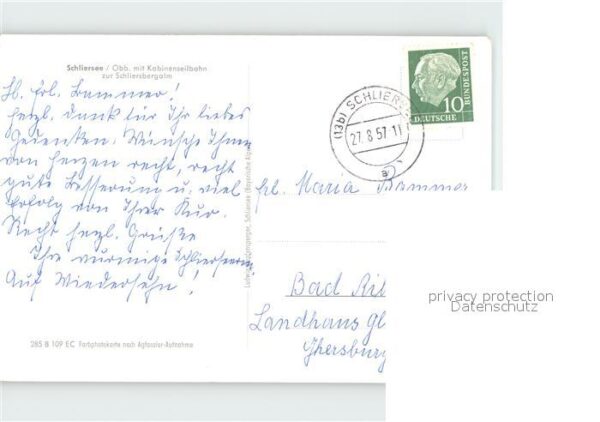 Schliersee / Obb. mit Kabinenseilbahn
zur Schliersbergalm
Lb. Frl. Bammer!
herzl. Dank für Ihr liebes
Gedenken. Wünsche Ihnen
von Herzen recht, recht
gute Besserung u. viel
Erfolg von Ihrer Kur.
Recht herzl. Grüße
Ihre Schlierseerin
Auf Wiedersehn!
285 B 109 EC Farbphotokarte nach Agfacolor-Aufnahme
Schliersee (Bayerische
(13b) SCHLIERS
27.8.57.11
a
10
DEUTSCHE
BUNDESPOST
Frl. Maria Bammer
Bad Aib
Landhaus Gl
Ghersburg
privacy protection
Datenschutz